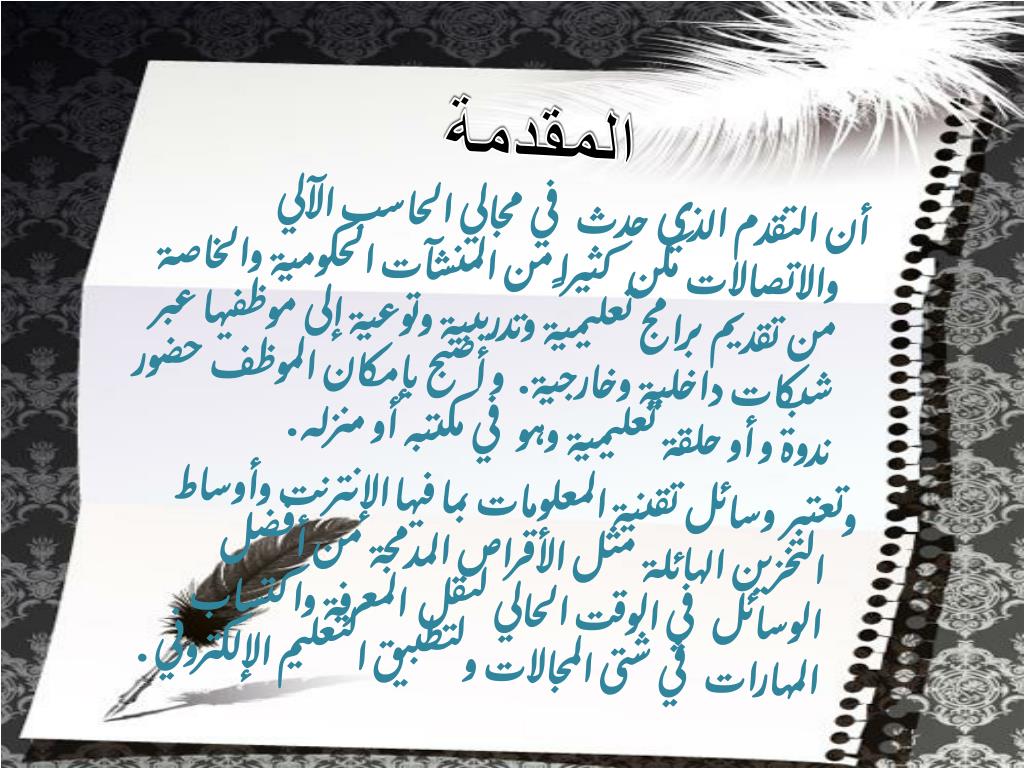 المقدمة
أن التقدم الذي حدث في مجالي الحاسب الآلي
والاتصالات مكن كثيراً من المنشآت الحكومية والخاصة
من تقديم برامج تعليمية وتدريبية وتوعية إلى موظفيها عبر
شبكات داخلية وخارجية. وأصبح بإمكان الموظف حضور
ندوة و أو حلقة تعليمية وهو في مكتبه أو منزله.
وتعتبر وسائل تقنية المعلومات بما فيها الإنترنت وأوساط
التخزين الهائلة مثل الأقراص المدمجة من أفضل
الوسائل في الوقت الحالي لنقل المعرفة واكتساب
المهارات في شتى المجالات و لتطبيق التعليم الإلكتروني.